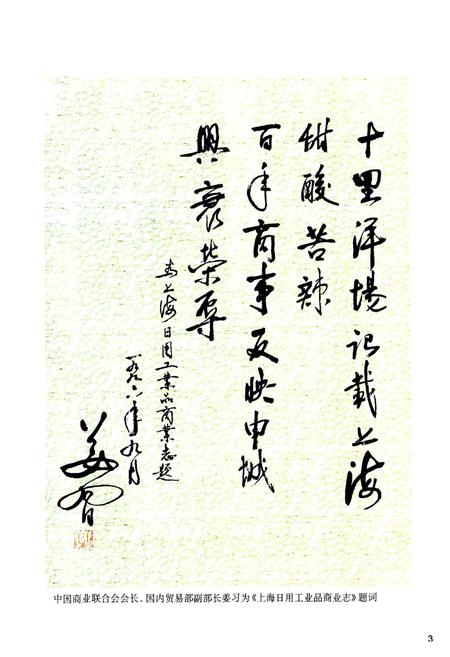 十里洋場记载上海
甜酸苦辣
百年商事反映申城
興衰榮辱
为上海日用工業品商業志题
一九九六年九月
姜习
中国商业联合会会长、国内贸易部副部长姜习为《上海日用工业品商业志》题词
3